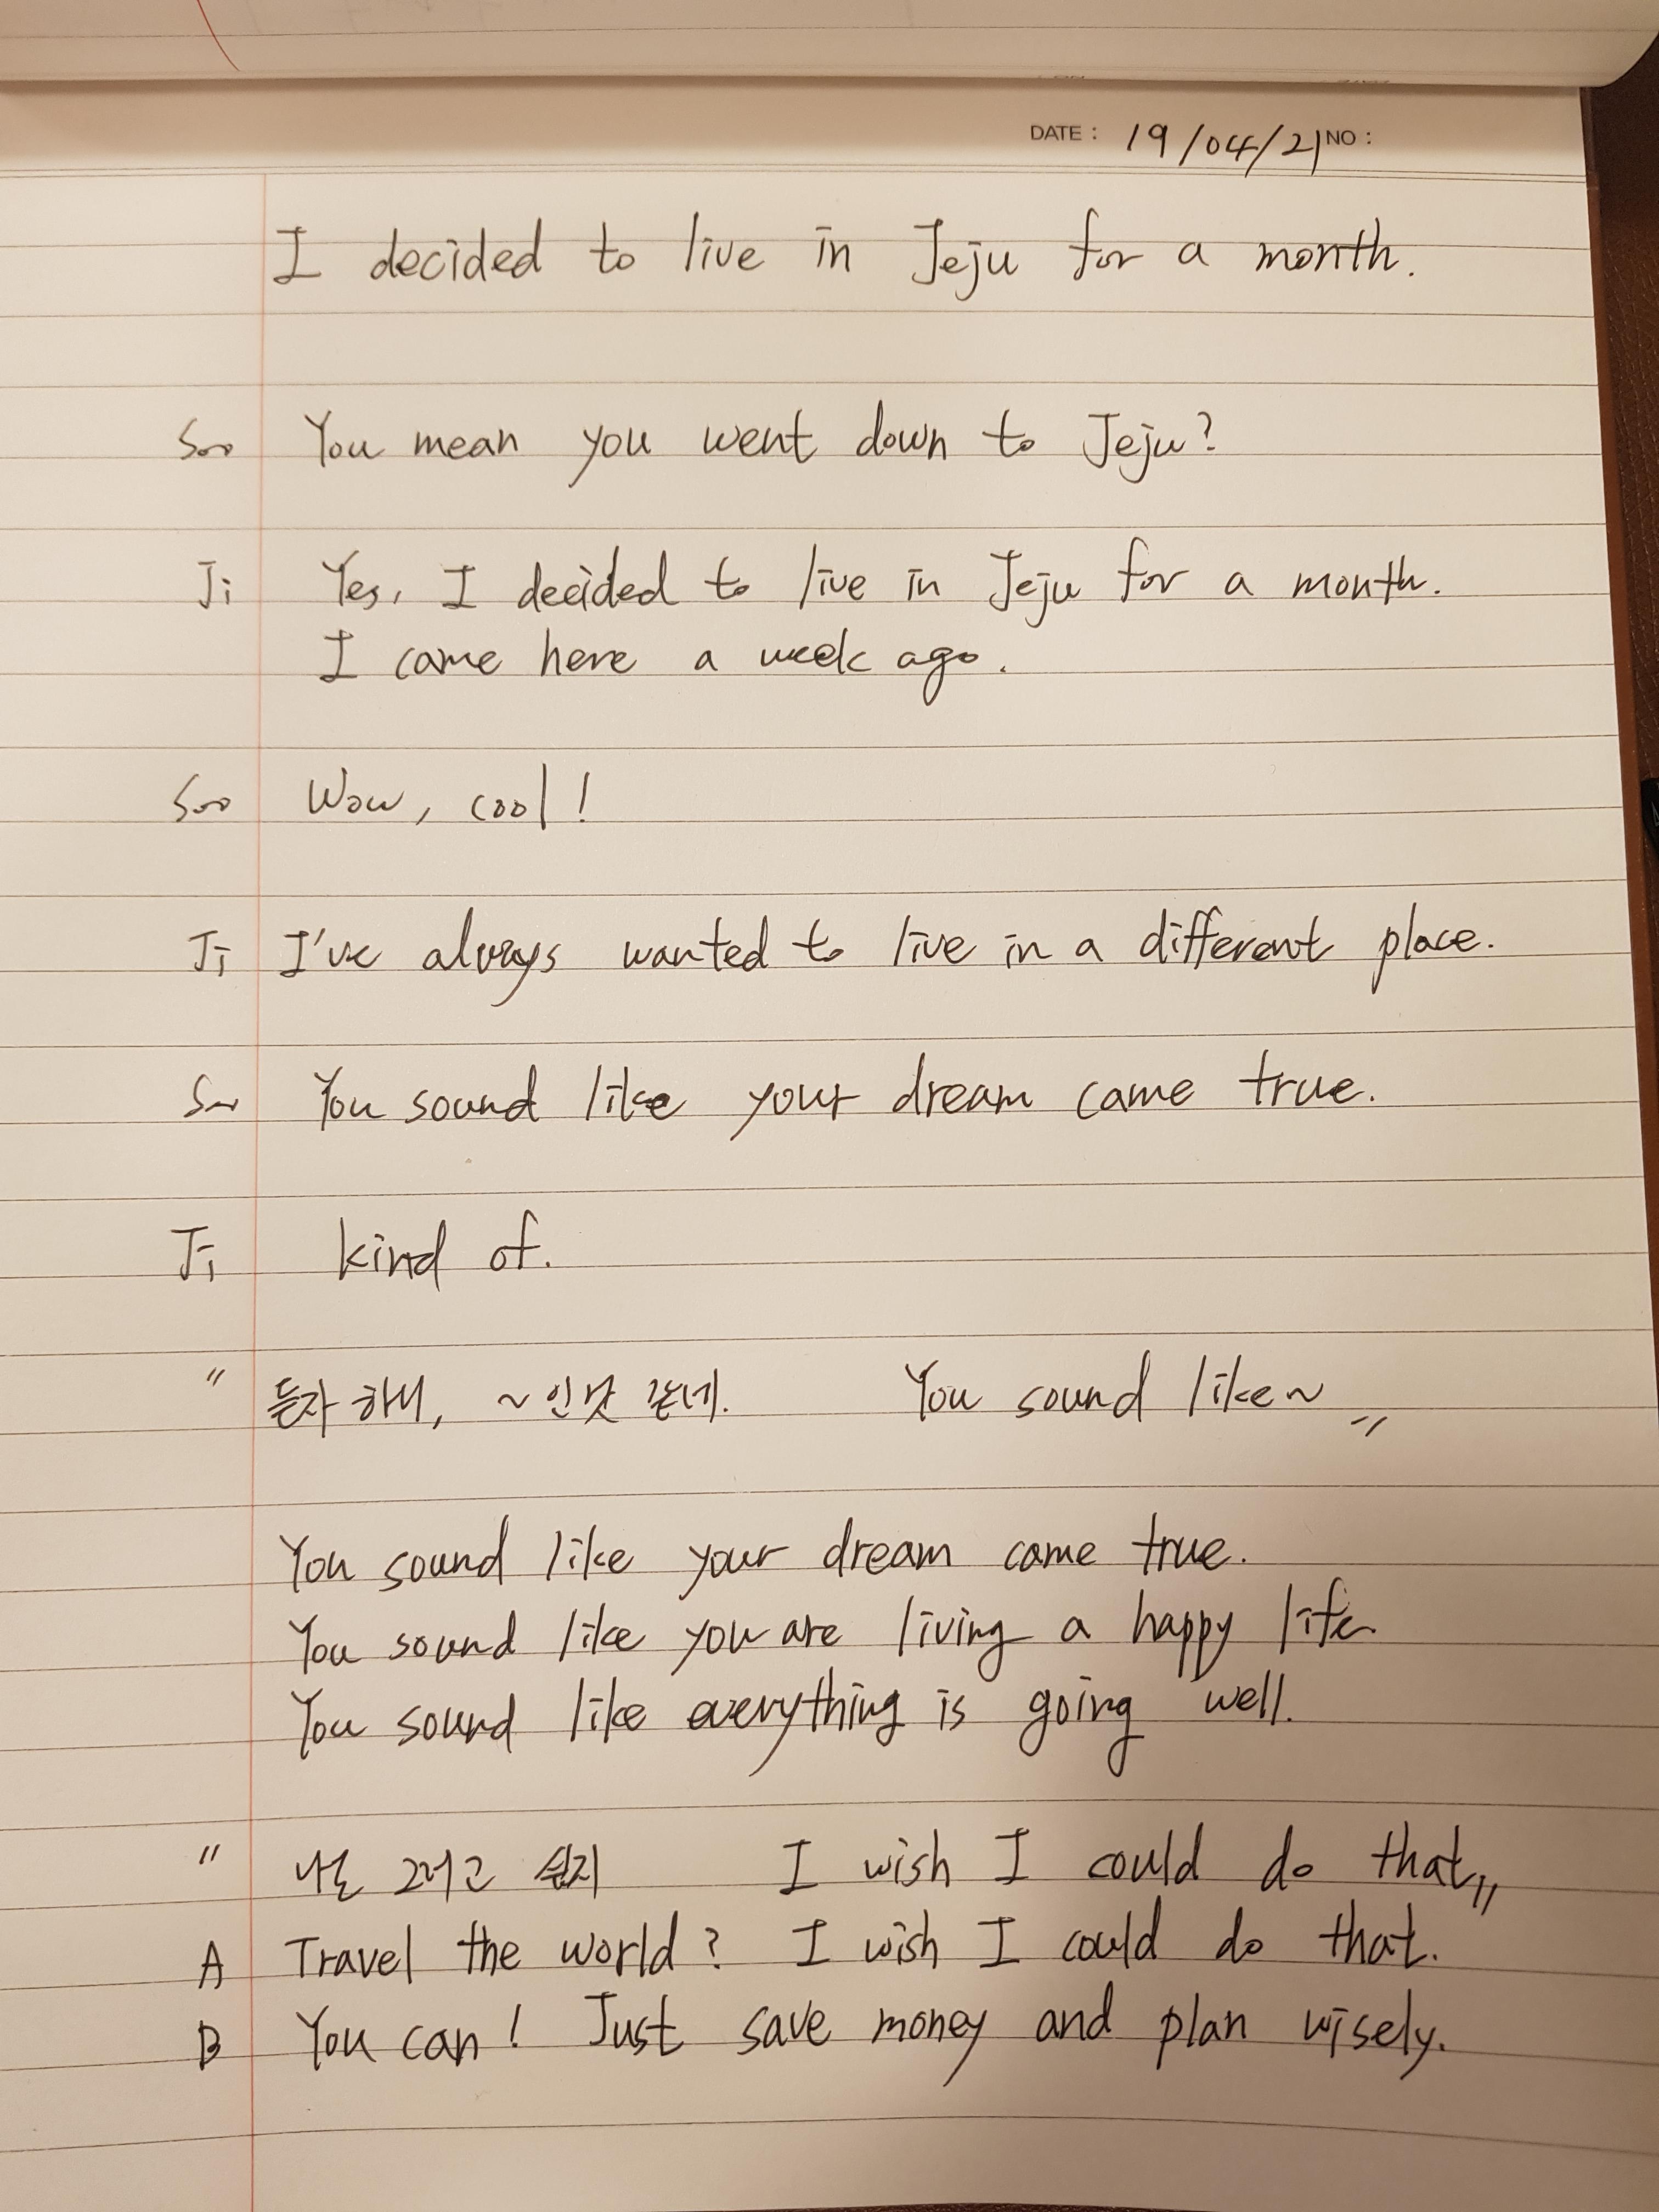 DATE : 19/04/21 NO :
I decided to live in Jeju for a month.
Soo You mean you went down to Jeju?
Ji Yes, I decided to live in Jeju for a month.
I came here a week ago.
Soo Wow, cool!
Ji I've always wanted to live in a different place.
Soo You sound like your dream came true.
Ji kind of.
" 듣자 하니, ~인 것 같네. You sound like~ "
You sound like your dream came true.
You sound like you are living a happy life
You sound like everything is going well.
" 나도 그러고 싶지 I wish I could do that "
A Travel the world? I wish I could do that.
B You can! Just save money and plan wisely.